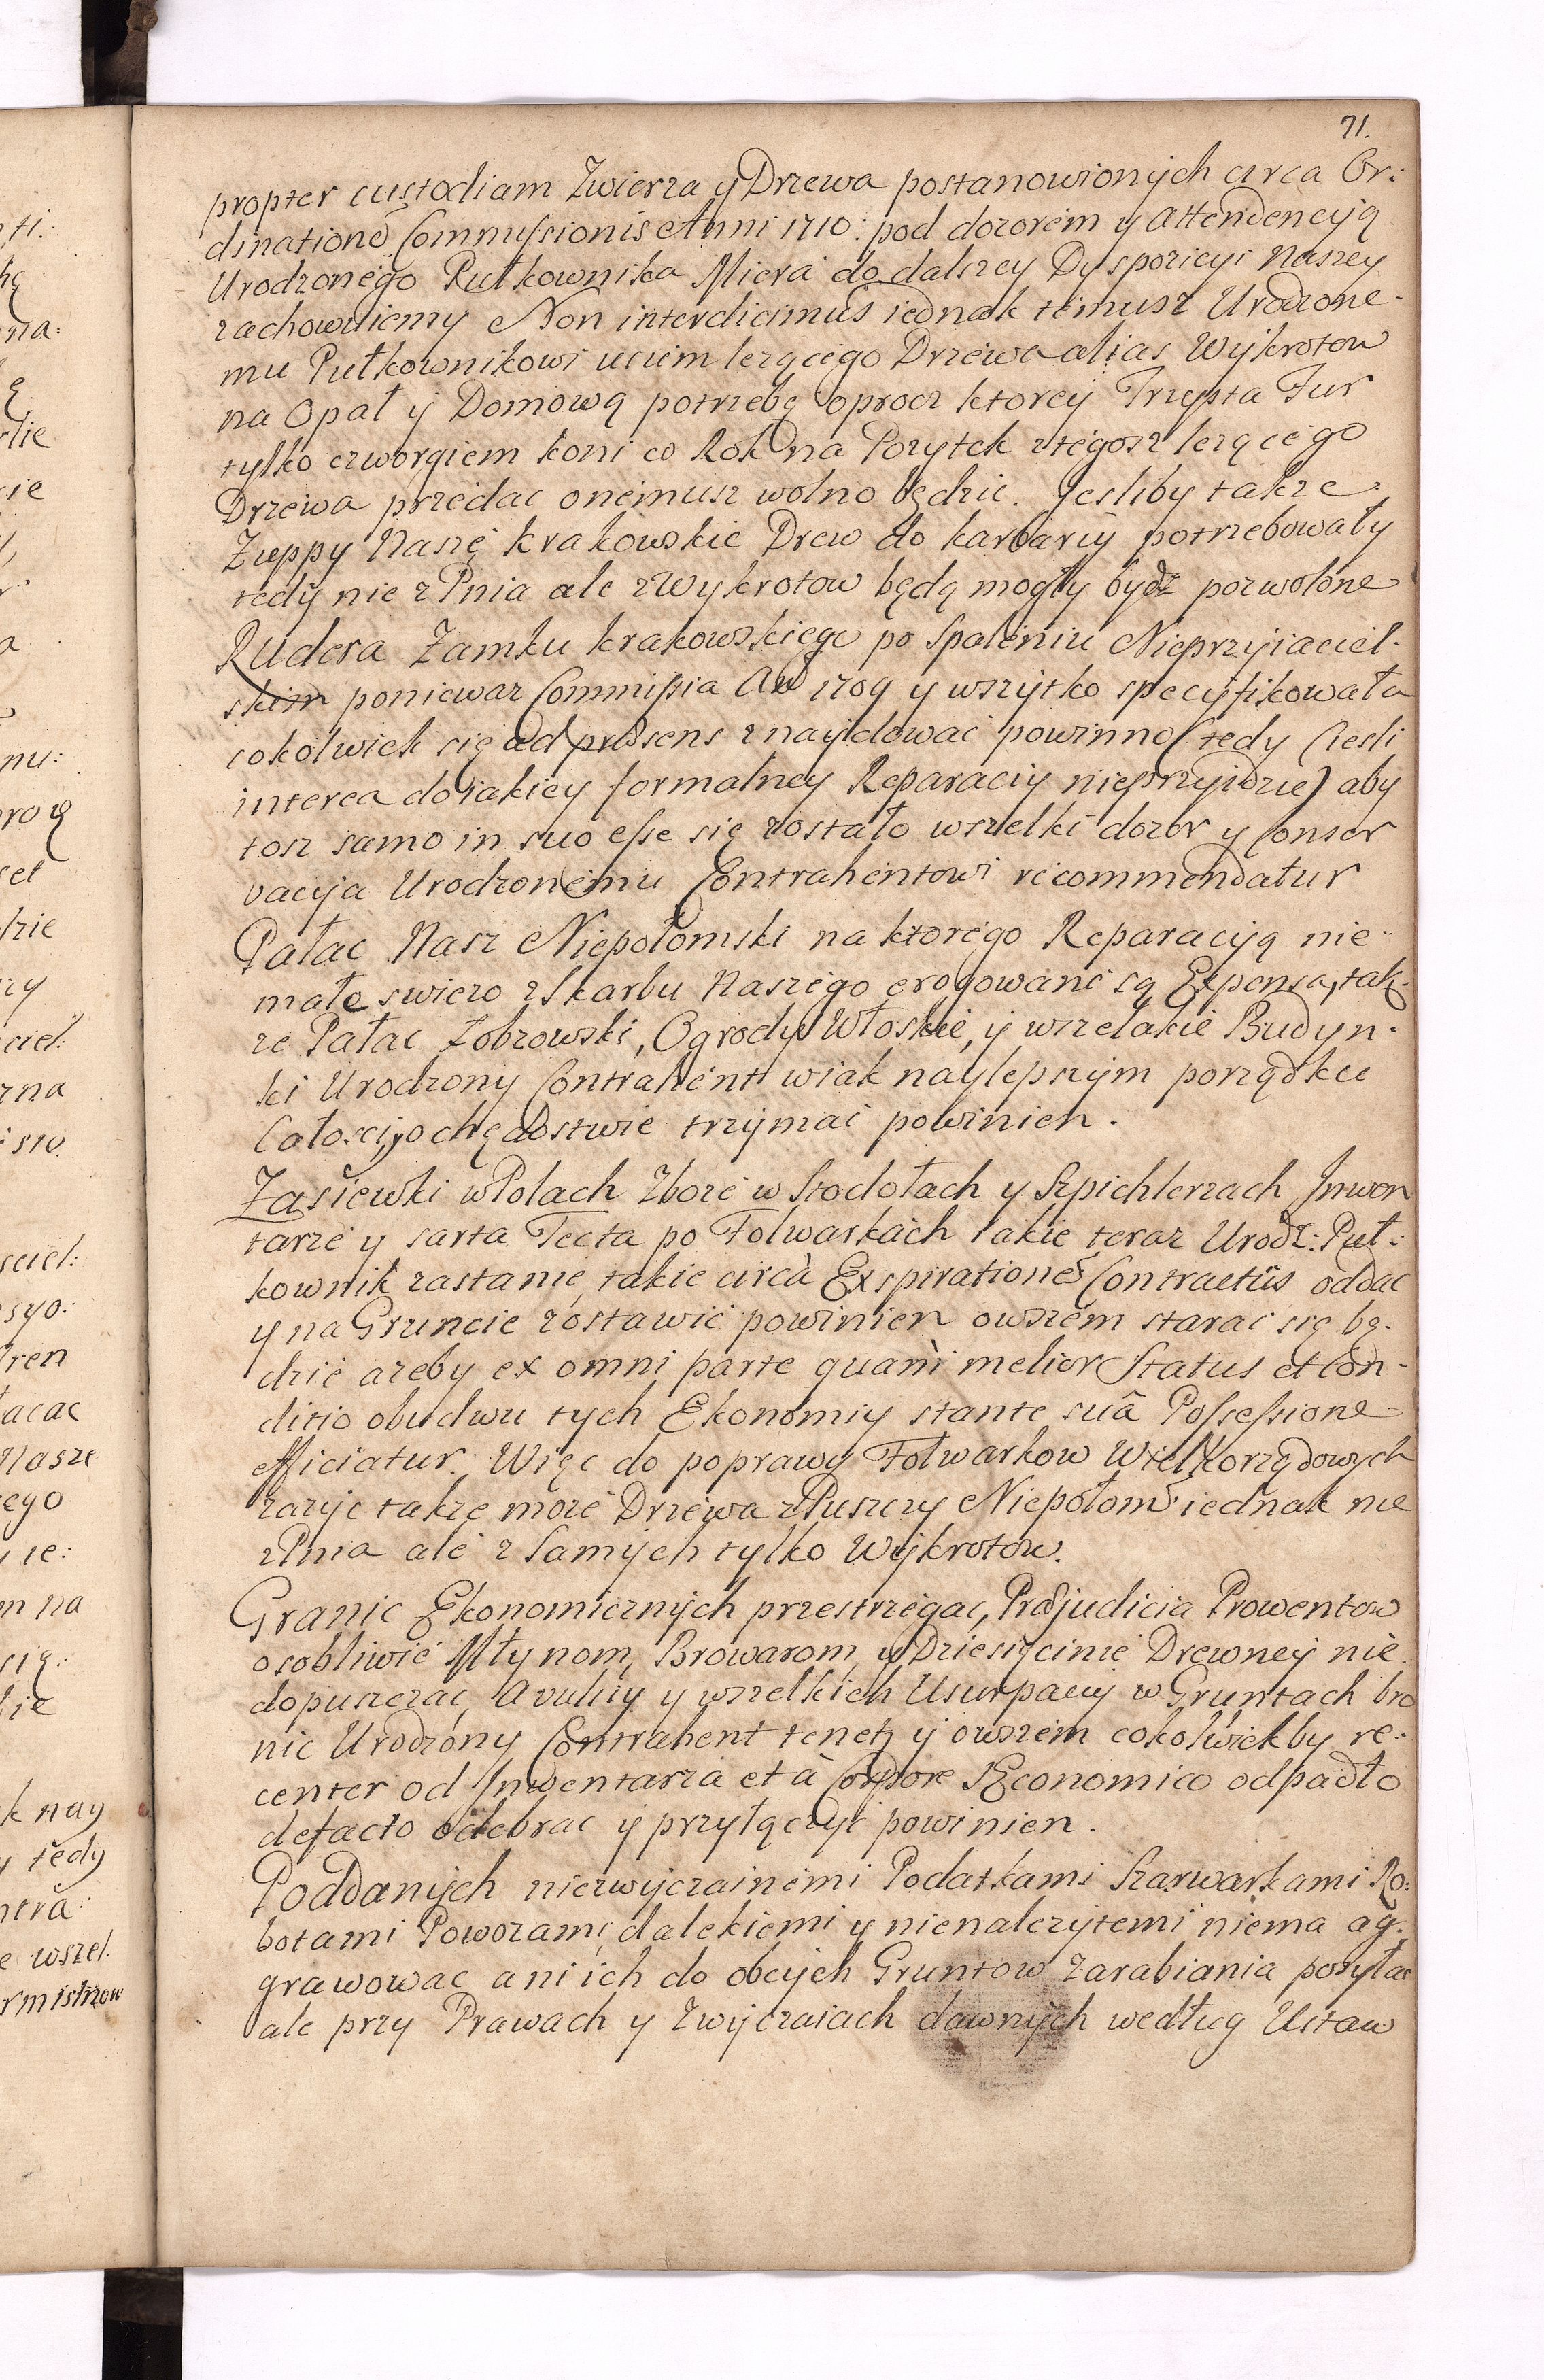 71.
propter custodiam Zwierza y Drzewa postanowionych circa Or:
dinatione Commissionis Anni 1710: pod dozorem y attendencyą
Urodzonego Pułkownika Miera do dalszey Dyspozicyi Naszey
zachowuiemy Non interdicimus iednak temusz Urodzone-
mu Pułkownikowi ucum lezącego Drzewa alias Wykrotow
na Opał y Domową potrzebę oprocz ktorey Trzysta Fur
tylko czworgiem koni co Rok na Pozytek ztegosz lezącego
Drzewa przedac onemusz wolno będzie. Jesliby takze
Zuppy Naszę krakowskie Drew do karbaryi potrzebowały
tedy nie z Pnia ale z Wykrotow będą mogły bydz pozwolone
Rudera Zamku krakowskiego po Spaleniu Nieprzyiaciel-
skim poniewaz Commissia Ao 1709 y wszytko specyfikowała
cokolwiek się ad præsens znaydować powinno tedy (iesli
interea do iakiey formalney Reparaciy nieprzyidzie) aby
tosz samo in suo esse się zostało wszelki dozor y Conser
vacyja Urodzonemu Contrahentowi recommendatur
Pałac Nasz Niepołomski na ktorego Reparacyją nie-
mało swiezo z Skarbu Naszego erogowane są Expensa, tak-
ze Pałac Łobzowski, Ogrody Włoskie, y wszelakie Budyn-
ki Urodzony Contrahent wiak naylepszym porządku
Całosci, y ochędostwie trzymać powinien.
Zasiewki w Polach Zboze w Stodołach y Szpichlerzach Inwen
tarze y sarta Tecta po Folwarkach iakie teraz Urodz: Puł-
kownik zastanie, takie circa Exspiratione Contractûs oddac
y na Gruncie zostawić powinien owszem starać się bę-
dzie azeby ex omni parte quam melior Status et Con-
ditio obudwu tych Ekonomiy stante suâ Possessione
efficiatur. Więc do poprawy Folwarkow Wielkorządowych
zazyc takze moze Drzewa z Puszczy Niepołom: iednak nie
z Pnia ale z Samych tylko Wykrotow.
Granic Ekonomicznych przestrzegac, Præjudicia Prowentow
osobliwie Młynom, Browarom, y Dziesięcinie Drewney nie
dopuszczać, Avulsiy y wszelkich Usurpacyi w Gruntach bro
nic Urodzony Contrahent tenetz y owszem cokolwiekby re-
center od Inwentarza et à Corpore Æconomico odpadło
defacto odebrac y przyłączyć powinien.
Poddanych niezwyczainemi Podatkami Szarwarkami Ro:
botami Powozami, dalekiemi y nienalezytemi niema ag-
grawowac ani ich do obcych Gruntow zarabiania posyłac
ale przy Prawach y Zwyczaiach dawnych według Ustaw